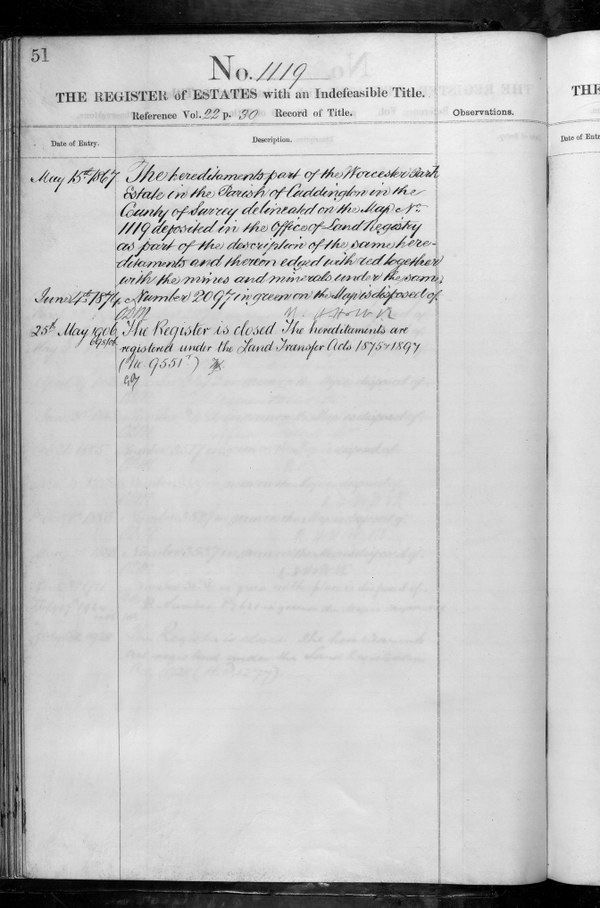 51
No. 1119
THE REGISTER of ESTATES with an Indefeasible Title.
Reference Vol. 22 p. 30 Record of Title.
Observations.
Date of Entry.
Description.
May 15th 1867
The hereditaments part of the Worcester Park
Estate in the Parish of Cuddington in the
County of Surrey delineated on the Map No.
1119 deposited in the Office of Land Registry
as part of the description of the same here-
ditaments and thereon edged with red together
with the mines and minerals under the same
June 4th 1874. Number 2097 in green on the Map is disposed of.
25th May 1906
The Register is closed The hereditaments are
registered under the Land Transfer Acts 1875 & 1897
(No. 9551)
THE
Date of Entr